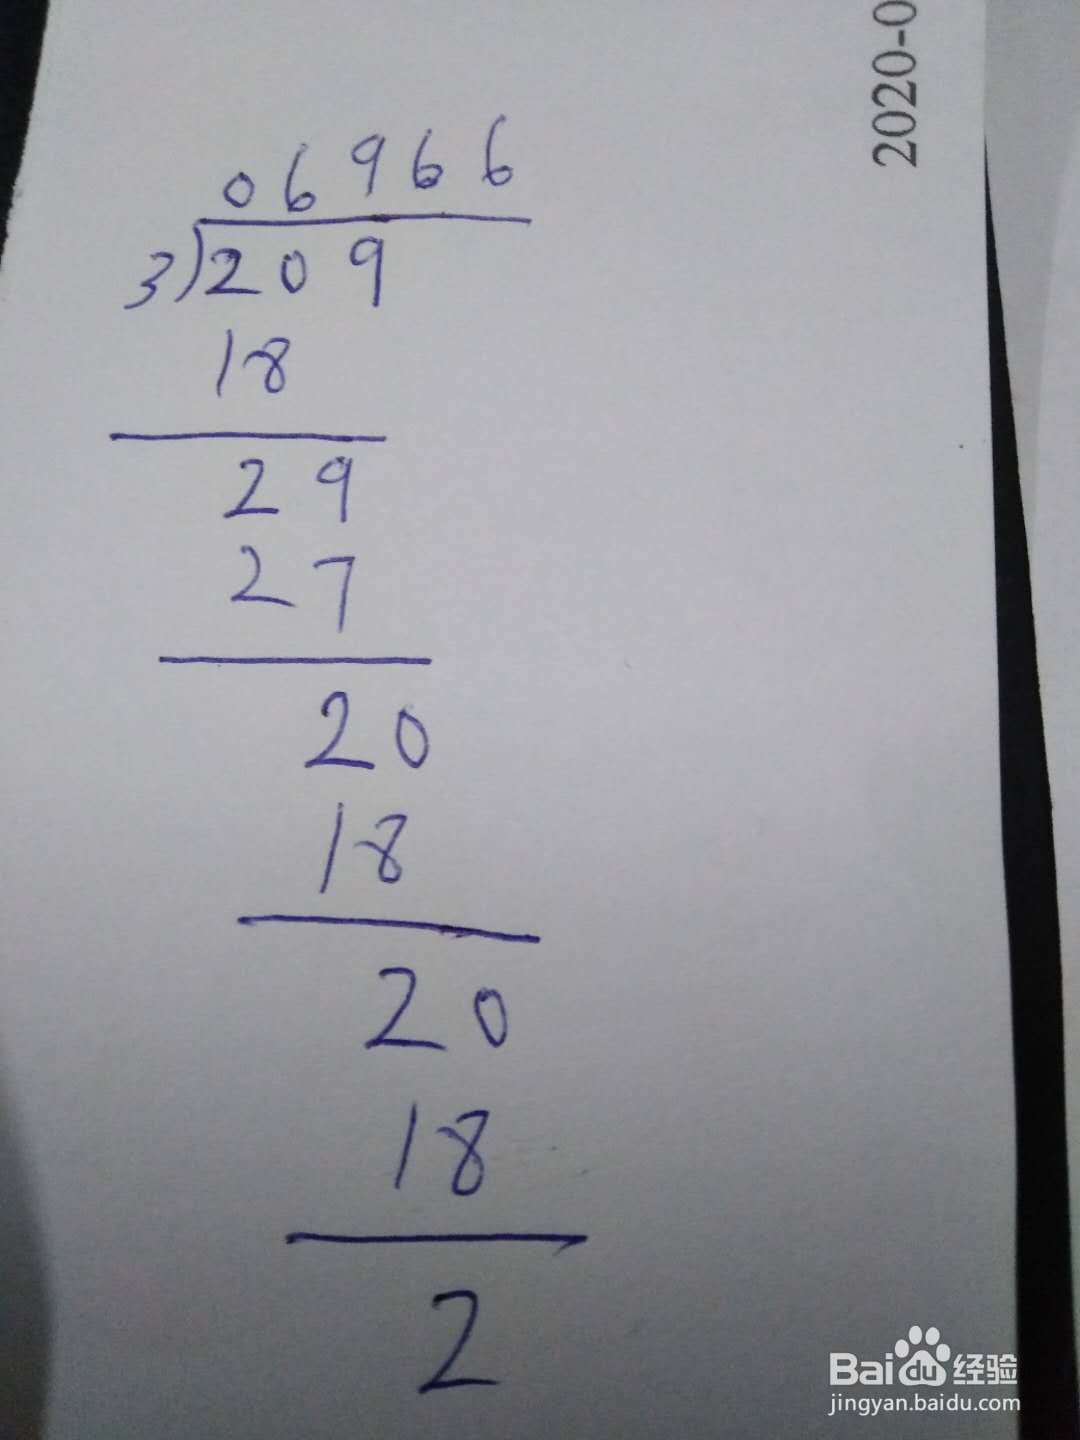 2020-0
06966
3)209
18
29
27
20
18
20
18
2
Baidu经验
jingyan.baidu.com